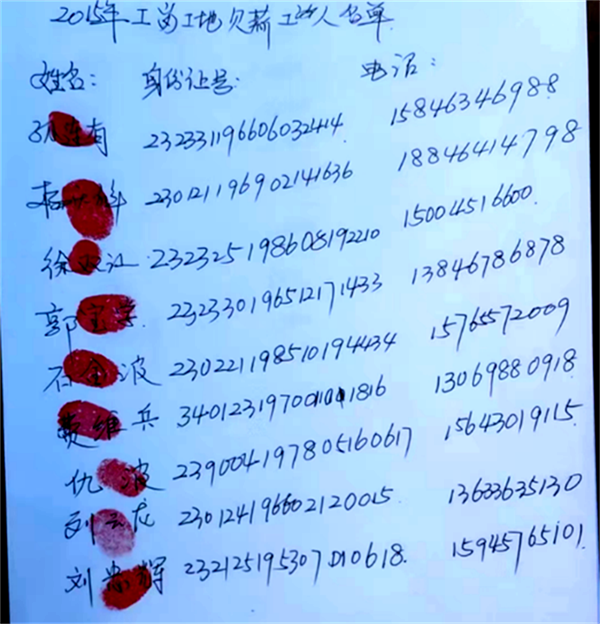 2015年工岗工地欠薪工人名单
姓名: 身份证号: 电话:
有 232331196606032414 15846346988
杨 230121196902141636 18846414798
徐双江 232325198608192210 15004516600
郭宝 232330196512171433 13846786878
石金波 230221198510194434 15765572009
维兵 13069880918
仇波 239004197805160617 15643019115
刘云龙 230124196602120015 13633635130
刘忠辉 15945765101